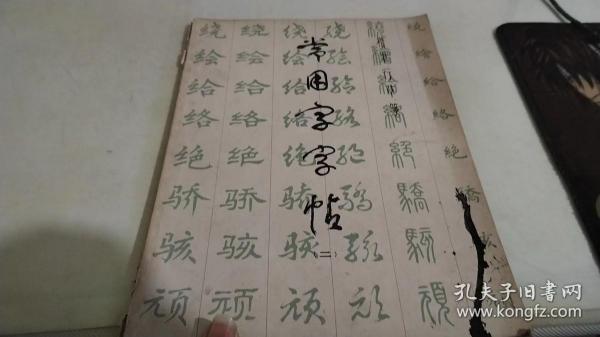 常用字字帖
（二）
绕 绕 绕 绕 繞 绕
绘 绘 绘 绘 繪 绘
给 给 给 给 給 给
络 络 络 络 絡 络
绝 绝 绝 绝 絕 绝
骄 骄 骄 骄 驕 骄
骇 骇 骇 骇 駭
顽 顽 顽 顽 頑
孔夫子旧书网
www.kongfz.com